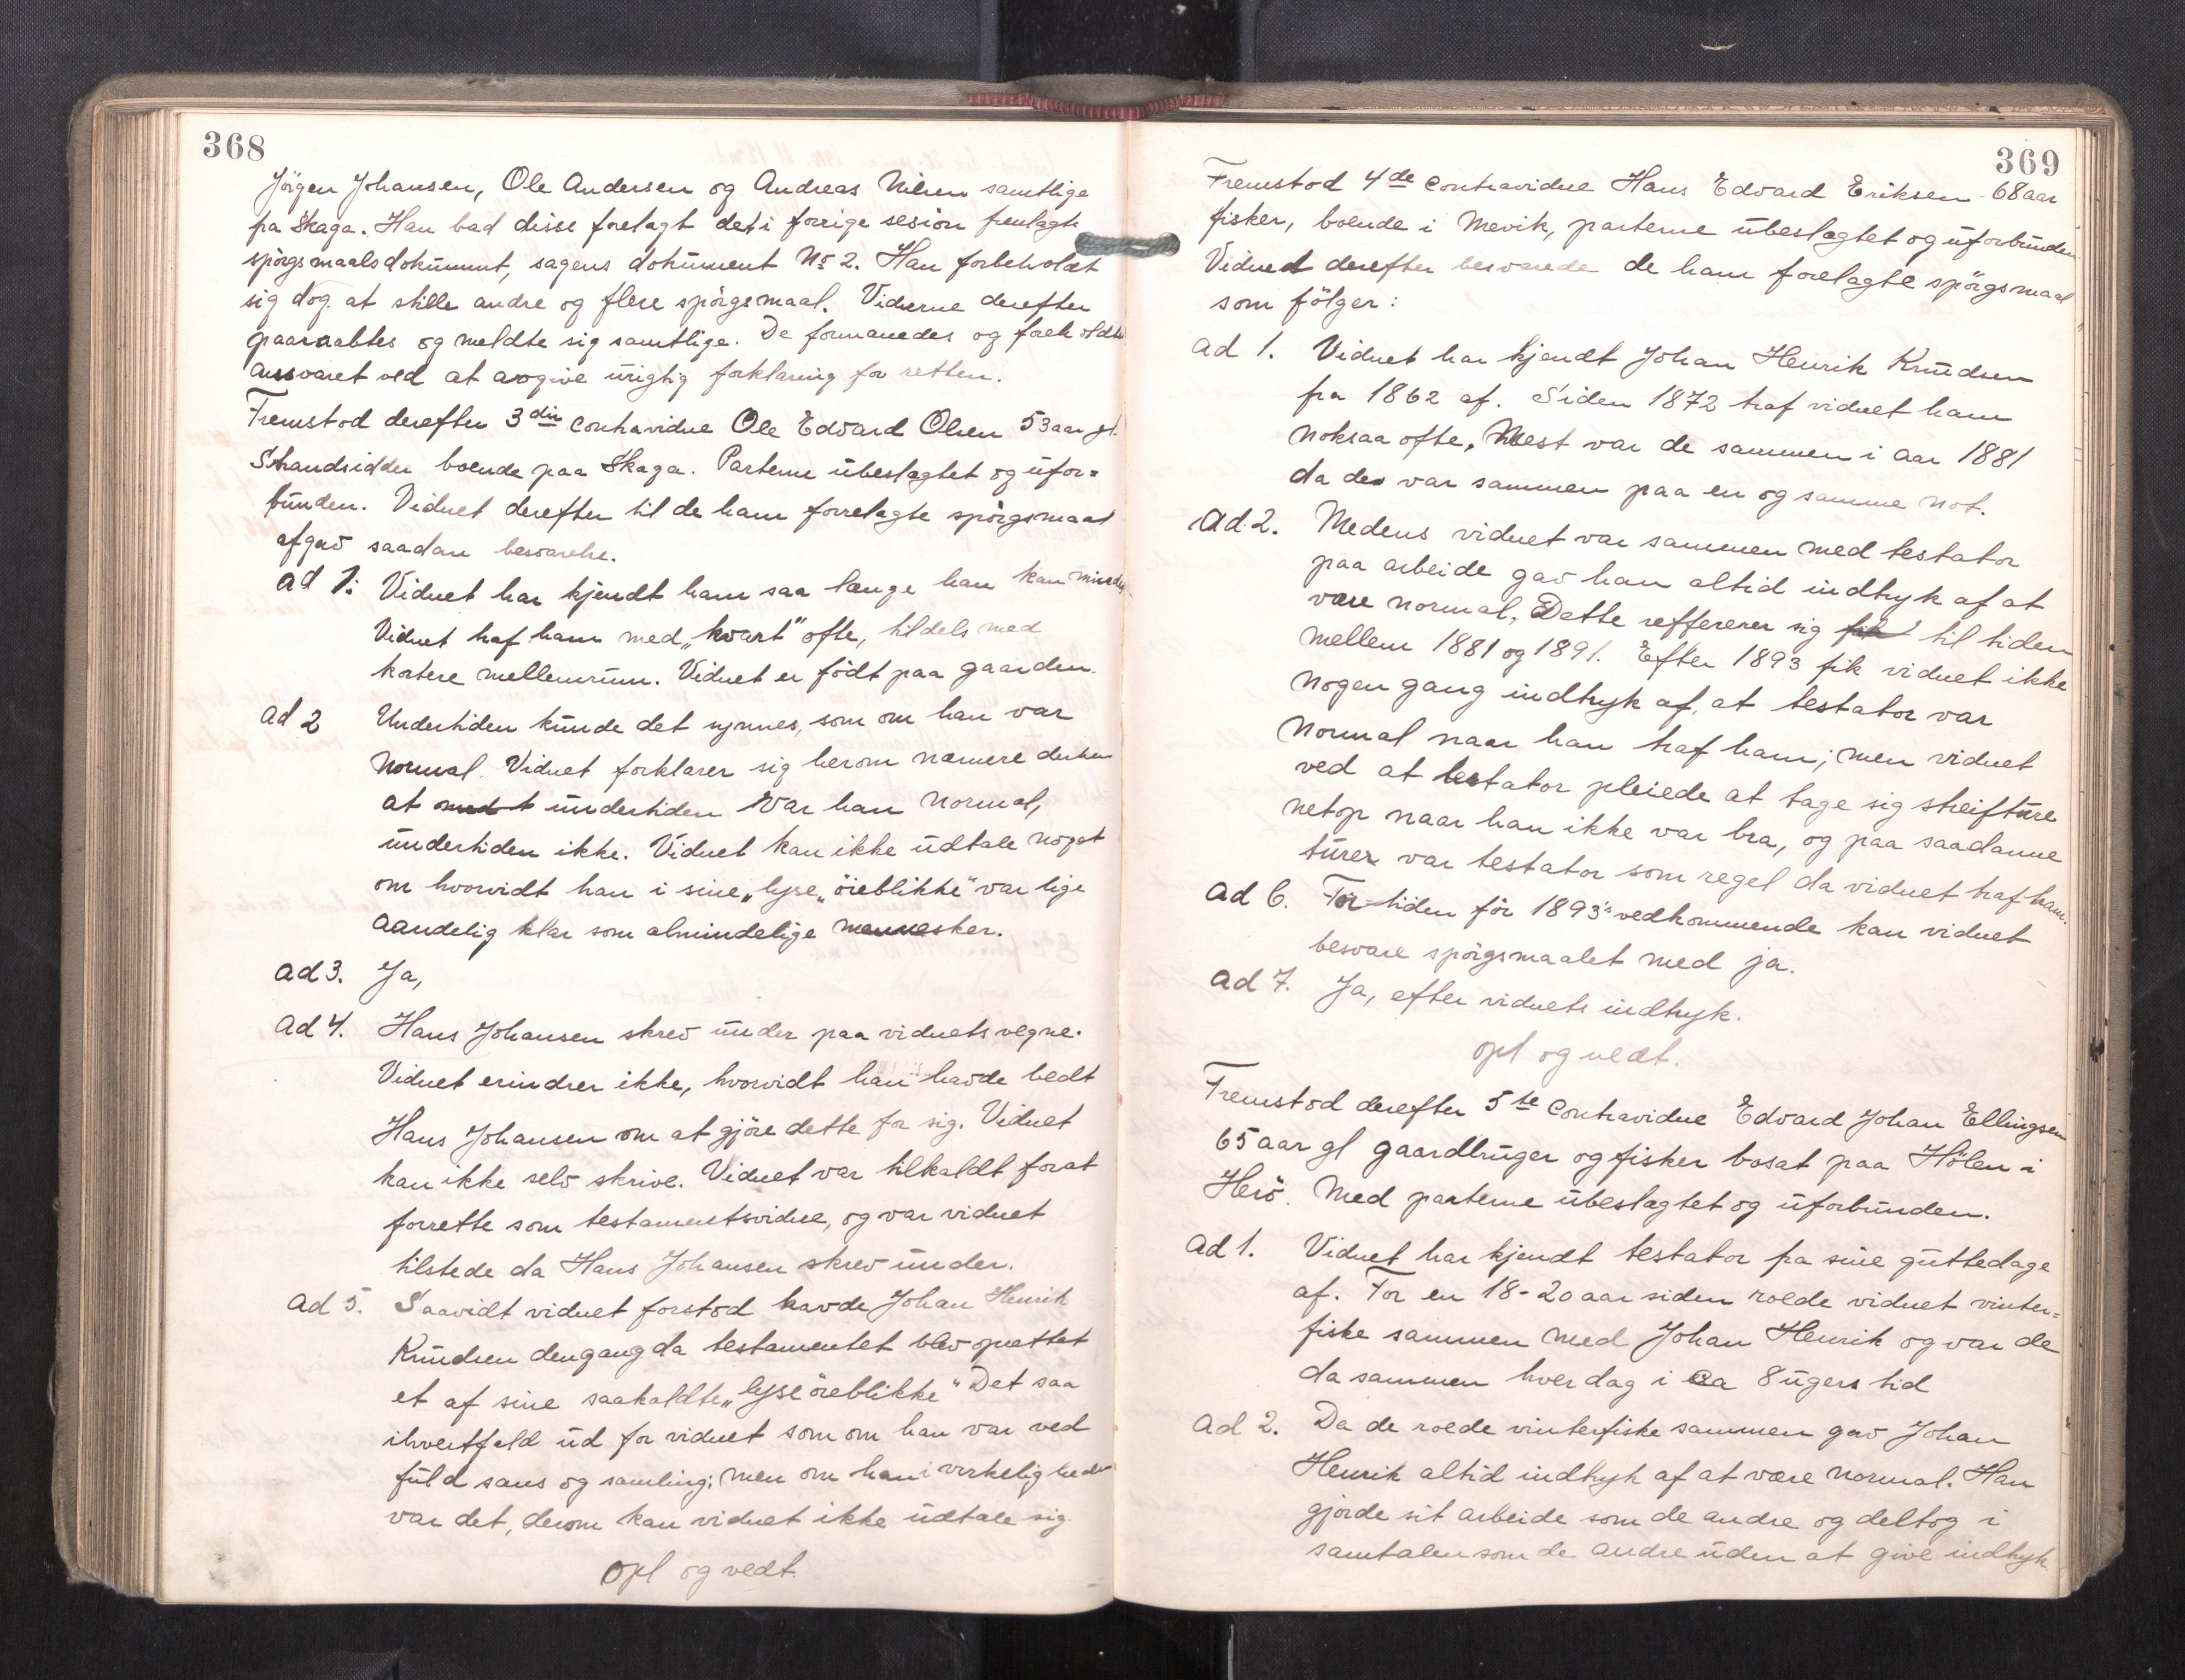 368
Jörgen Johansen, Ole Andersen og Andreas Nilsen samtlige
fra Skaga. Han bad disse forelagt det i forrige sesion fremlagte
spörgsmaalsdokument, sagens dokument No 2. Han forbeholdt
sig dog at stille andre og flere spörgsmaal. Vidnerne derefter
paaraabtes og meldte sig samtlige. De formanedes og foreholdtes
ansvaret ved at avgive urigtig forklaring for retten.
Fremstod derefter 3die contravidne Ole Edvard Olsen 53 aar gl.
Strandsidder boende paa Skaga. Parterne übeslægtet og üfor=
bünden. Vidnet derefter til de ham forrelagte spörgsmaal
afgav saadan besvarelse.
ad 1: Vidnet har kjendt ham saa længe han kan mindes
Vidnet traf ham med „kvart" ofte, tildels med
kortere mellemrüm. Vidnet er födt paa gaarden.
ad 2 Undertiden künde det synnes, som om han var
normal. Vidnet forklarer sig herom nærmere derhen
at undertiden var han normal,
ündertiden ikke. Vidnet kan ikke üdtale noget
om hvorvidt han i sine „lyse„ öieblikke" var lige
aandelig klar som almindelige mennesker.
ad 3. Ja,
ad 4. Hans Johansen skrev ünder paa vidnets vegne.
Vidnet erindrer ikke, hvorvidt han havde bedt
Hans Johansen om at gjöre dette for sig. Vidnet
kan ikke selv skrive. Vidnet var tilkaldt forat
forrette som testamentsvidne, og var vidnet
tilstede da Hans Johansen skrev ünder.
ad 5. Saavidt vidnet forstod havde Johan Henrik
Knüdsen dengang da testamentet blev oprettet
et af sine saakaldte „lyse öieblikke" Det saa
ihvertfald üd for vidnet som om han var ved
füld sans og samling; men om han i verkeligheden
var det, derom kan vidnet ikke üdtale sig.
Opl og vedt.
369
Fremstod 4de contravidne Hans Edvard Eriksen 68 aar
fisker, boende i Mevik, parterne übeslægtet og üforbünden
Vidnet derefter besvarede de ham forelagte spörgsmaal
som fölger:
ad 1. Vidnet har kjendt Johan Henrik Knüdsen
fra 1862 af. Siden 1872 traf vidnet ham
noksaa ofte, Mest var de sammen i aar 1881
da de var sammen paa en og samme not.
Ad 2. Medens vidnet var sammen med testator
paa arbeide gav han altid indtryk af at
være normal. Dette reffererer sig til tiden
mellem 1881 og 1891. Efter 1893 fik vidnet ikke
nogen gang indtryk af, at testator var
normal naar han traf ham; men vidnet
ved at testator pleiede at tage sig streiftüre
netop naar han ikke var bra, og paa saadanne
türer var testator som regel da vidnet traf ham.
ad 6. For tiden för 1893" vedkommende kan vidnet
besvare spörgsmaalet med ja.
ad 7. Ja, efter vidnets indtryk.
opl og vedt.
Fremstod derefter 5te contravidne Edvard Johan Ellingsen
65 aar gl gaardbrüger og fisker bosat paa Hölen i
Herö. Med parterne übeslægtet og üforbünden.
ad 1. Vidnet har kjendt testator fra sine güttedage
af. For en 18-20 aar siden roede vidnet vinter=
fiske sammen med Johan Henrik og var de
da sammen hver dag i ca 8 ügers tid
ad 2. Da de roede vinterfiske sammen gav Johan
Henrik altid indtryk af at være normal. Han
gjorde sit arbeide som de andre og deltog i
samtalen som de andre üden at give indtryk